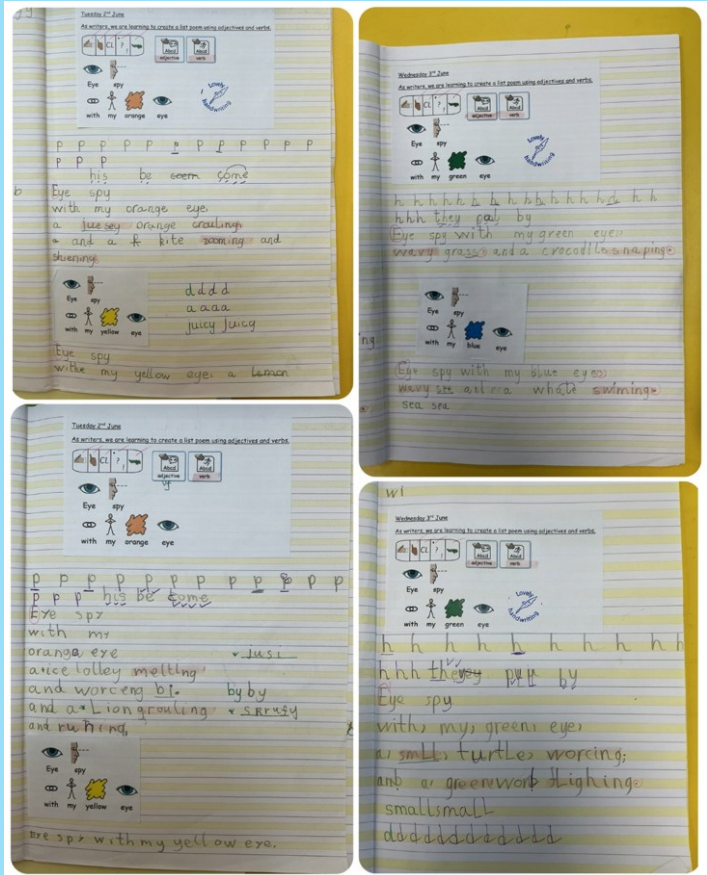 Tuesday 2nd June
As writers, we are learning to create a list poem using adjectives and verbs.
CL ? !
Abcd Abcd
adjective verb
Eye spy
with my orange eye
Lovely handwriting
p p p p p p p p p p p p
p p p
his be seem come
b
Eye spy
with my orange eye
a juesey orange crouling
and a kite zooming and
shiening
Eye spy
with my yellow eye
d d d d
a a a a
juicy juicy
Eye spy
withe my yellow eye a lemon
Wednesday 3rd June
As writers, we are learning to create a list poem using adjectives and verbs.
CL ? !
Abcd Abcd
adjective verb
Eye spy
with my green eye
Lovely handwriting
h h h h h h h h h h h h h h h
h h h they by
Eye spy with my green eye
wavy grass and a crocodile snaping
Eye spy
with my blue eye
Eye spy with my blue eye
wavy see whale swiming
sea sea
Tuesday 2nd June
As writers, we are learning to create a list poem using adjectives and verbs.
CL ? !
Abcd Abcd
adjective verb
Eye spy
with my orange eye
p p p p p p p p p p p p
p p p his be come
Eye spy
with my
oranga eye jusi
a ice lolley melting
and worceng bi. by by
and a Lion grouling
and runing
Eye spy
with my yellow eye
Eye spy with my yellow eye.
wi
Wednesday 3rd June
As writers, we are learning to create a list poem using adjectives and verbs.
CL ? !
Abcd Abcd
adjective verb
Eye spy
with my green eye
Lovely handwriting
h h h h h h h h h h
h h h by
Eye spy
with my green eye
a smll turtle worcing
and a green
small small
d d d d d d d d d d d d